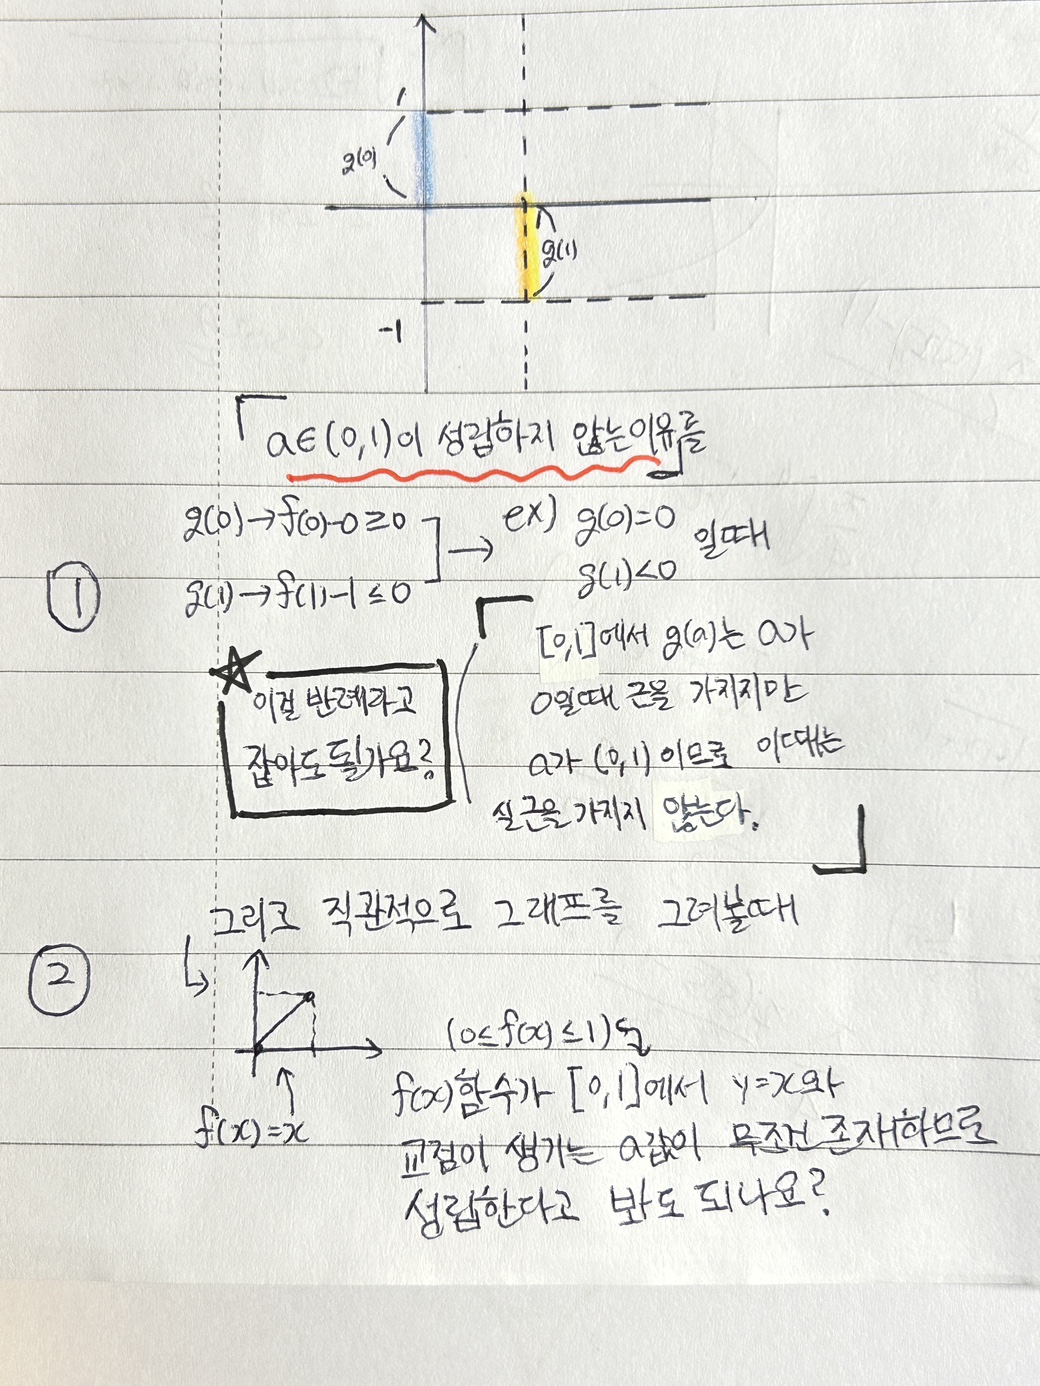 1
g(0)
g(1)
-1
「a∈(0,1)이 성립하지 않는이유를」
g(0)→f(0)-0≥0 → ex) g(0)=0 일때
①
g(1)→f(1)-1≤0 g(1)<0
「[0,1]에서 g(a)는 a가
☆
이걸 반례라고 0일때 근을 가지지만
잡아도될가요? a가 (0,1)이므로 이때는
실근을 가지지 않는다.」
그리고 직관적으로 그래프를 그려볼때
②
(0≤f(x)≤1)
f(x)함수가 [0,1]에서 y=x와
f(x)=x
교점이 생기는 a값이 무조건존재하므로
성립한다고 봐도 되나요?